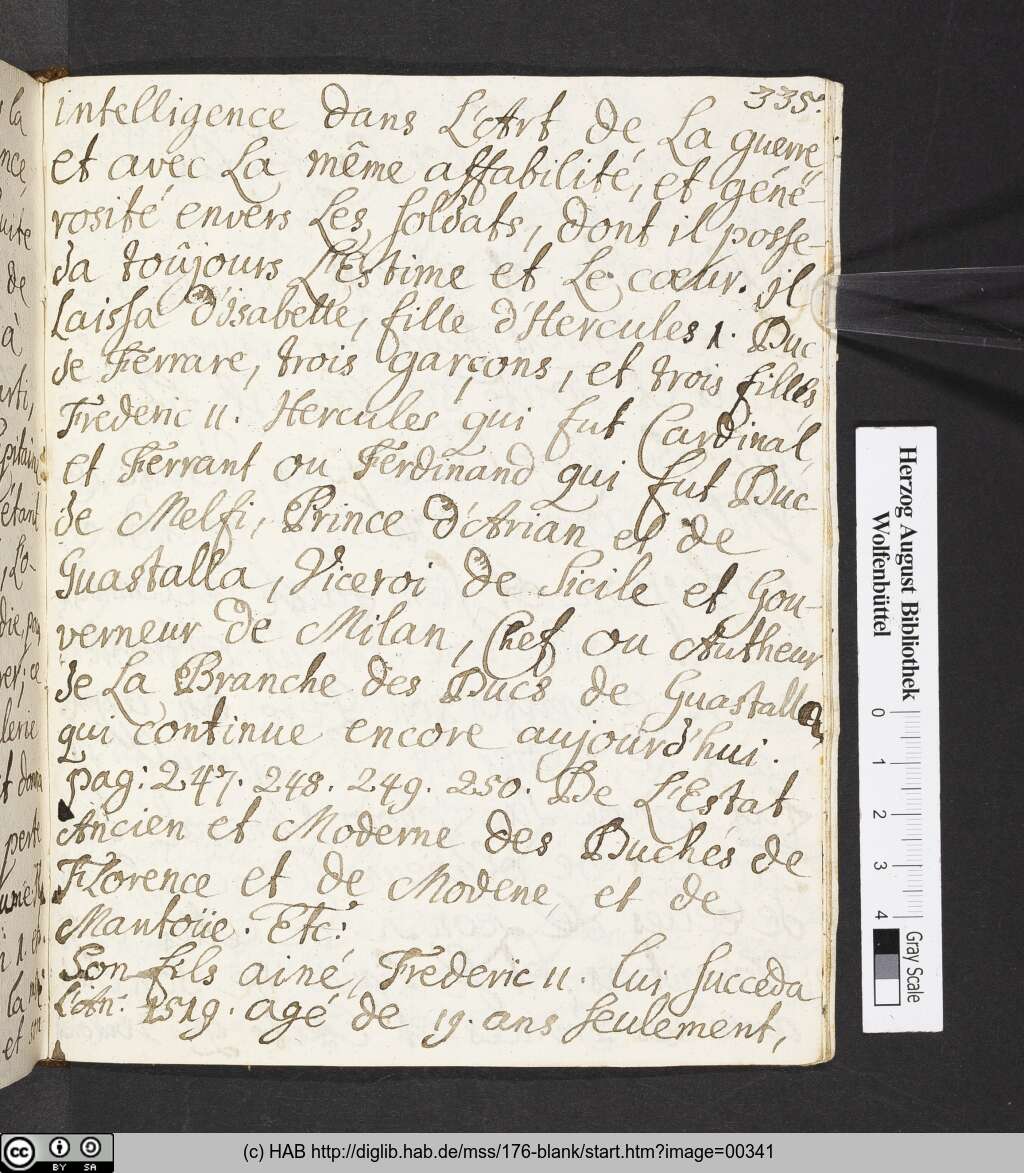 335.
intelligence dans L'Art de La guerre,
et avec La même affabilité, et géné-
rosité envers Les soldats, dont il posse-
da toûjours L'Estime et Le cœur. il
Laissa d'isabelle, fille d'Hercules 1. Duc
de Ferrare, trois garçons, et trois filles,
Frederic II. Hercules qui fut Cardinal,
et Ferrant ou Ferdinand qui fut Duc
de Melfi, Prince d'Arian et de
Guastalla, Viceroi de Sicile et Gou-
verneur de Milan, Chef ou Autheur
de La Branche des Ducs de Guastalla,
qui continue encore aujourd'hui.
pag: 247. 248. 249. 250. De L'Estat
Ancien et Moderne des Duchés de
Florence et de Modene, et de
Mantoüe. Etc:
Son fils ainé, Frederic II. lui succeda
L'An: 1519. agé de 19. ans seulement,
Herzog August Bibliothek
Wolfenbüttel
0 1 2 3 4
Gray Scale
cc BY SA
(c) HAB http://diglib.hab.de/mss/176-blank/start.htm?image=00341